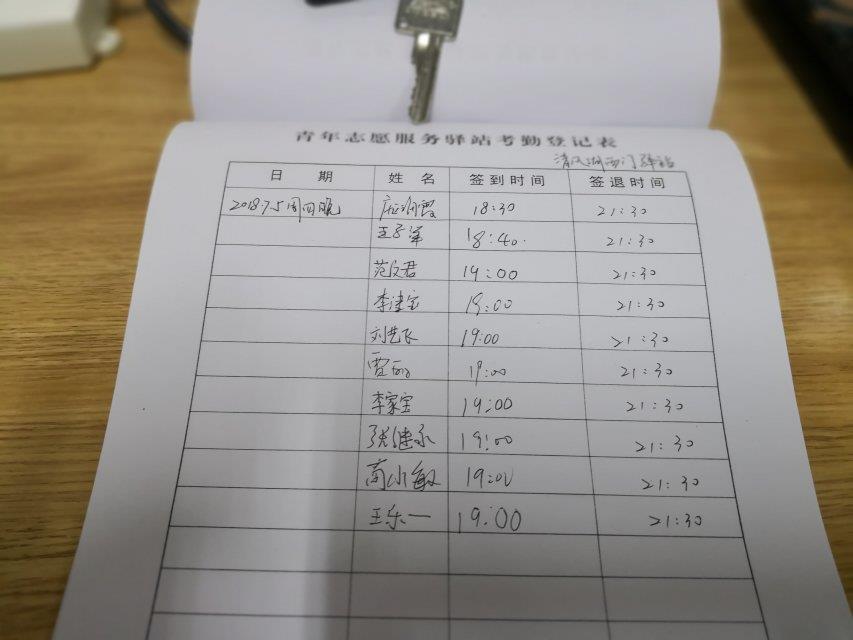 青年志愿服务驿站考勤登记表
清风湖西门驿站
日 期 姓 名 签到时间 签退时间
2018.7.5周四晚 18:30 21:30
18:40. 21:30
范文君 19:00 21:30
李建宝 19:00 21:30
刘艺飞 19:00 21:30
贾丽 19:00 21:30
李家宝 19:00 21:30
张继永 19:00 21:30
苘小敏 19:00 21:30
王乐一 19:00 21:30